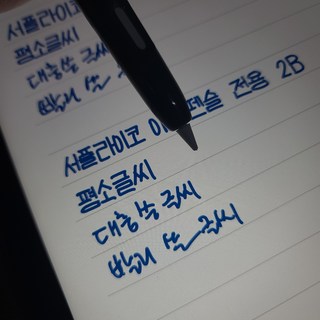 서플라이코
평소글씨
대충쓴 글씨
빨리 쓴
서플라이코 펜슬 전용 2B
평소글씨
대충쓴 글씨
빨리 쓴 글씨